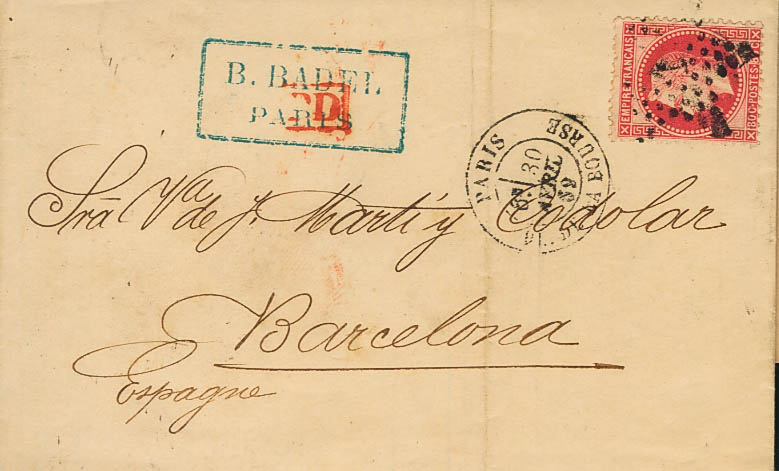 B. BADEL
PARIS
PD
EMPIRE FRANÇAIS
80C·POSTES·80C
PARIS
PL. DE LA BOURSE
30
69
Sra Va de J. Martí y Codolar
Barcelona
Espagne